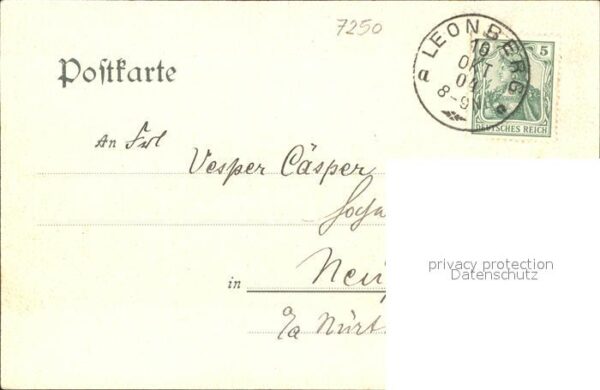 7250
LEONBERG
10
OKT
04
8-9N
a
5
DEUTSCHES REICH
Postkarte
An Frl
Vesper Cäsper
in Neu
o/a Nürt
privacy protection
Datenschutz